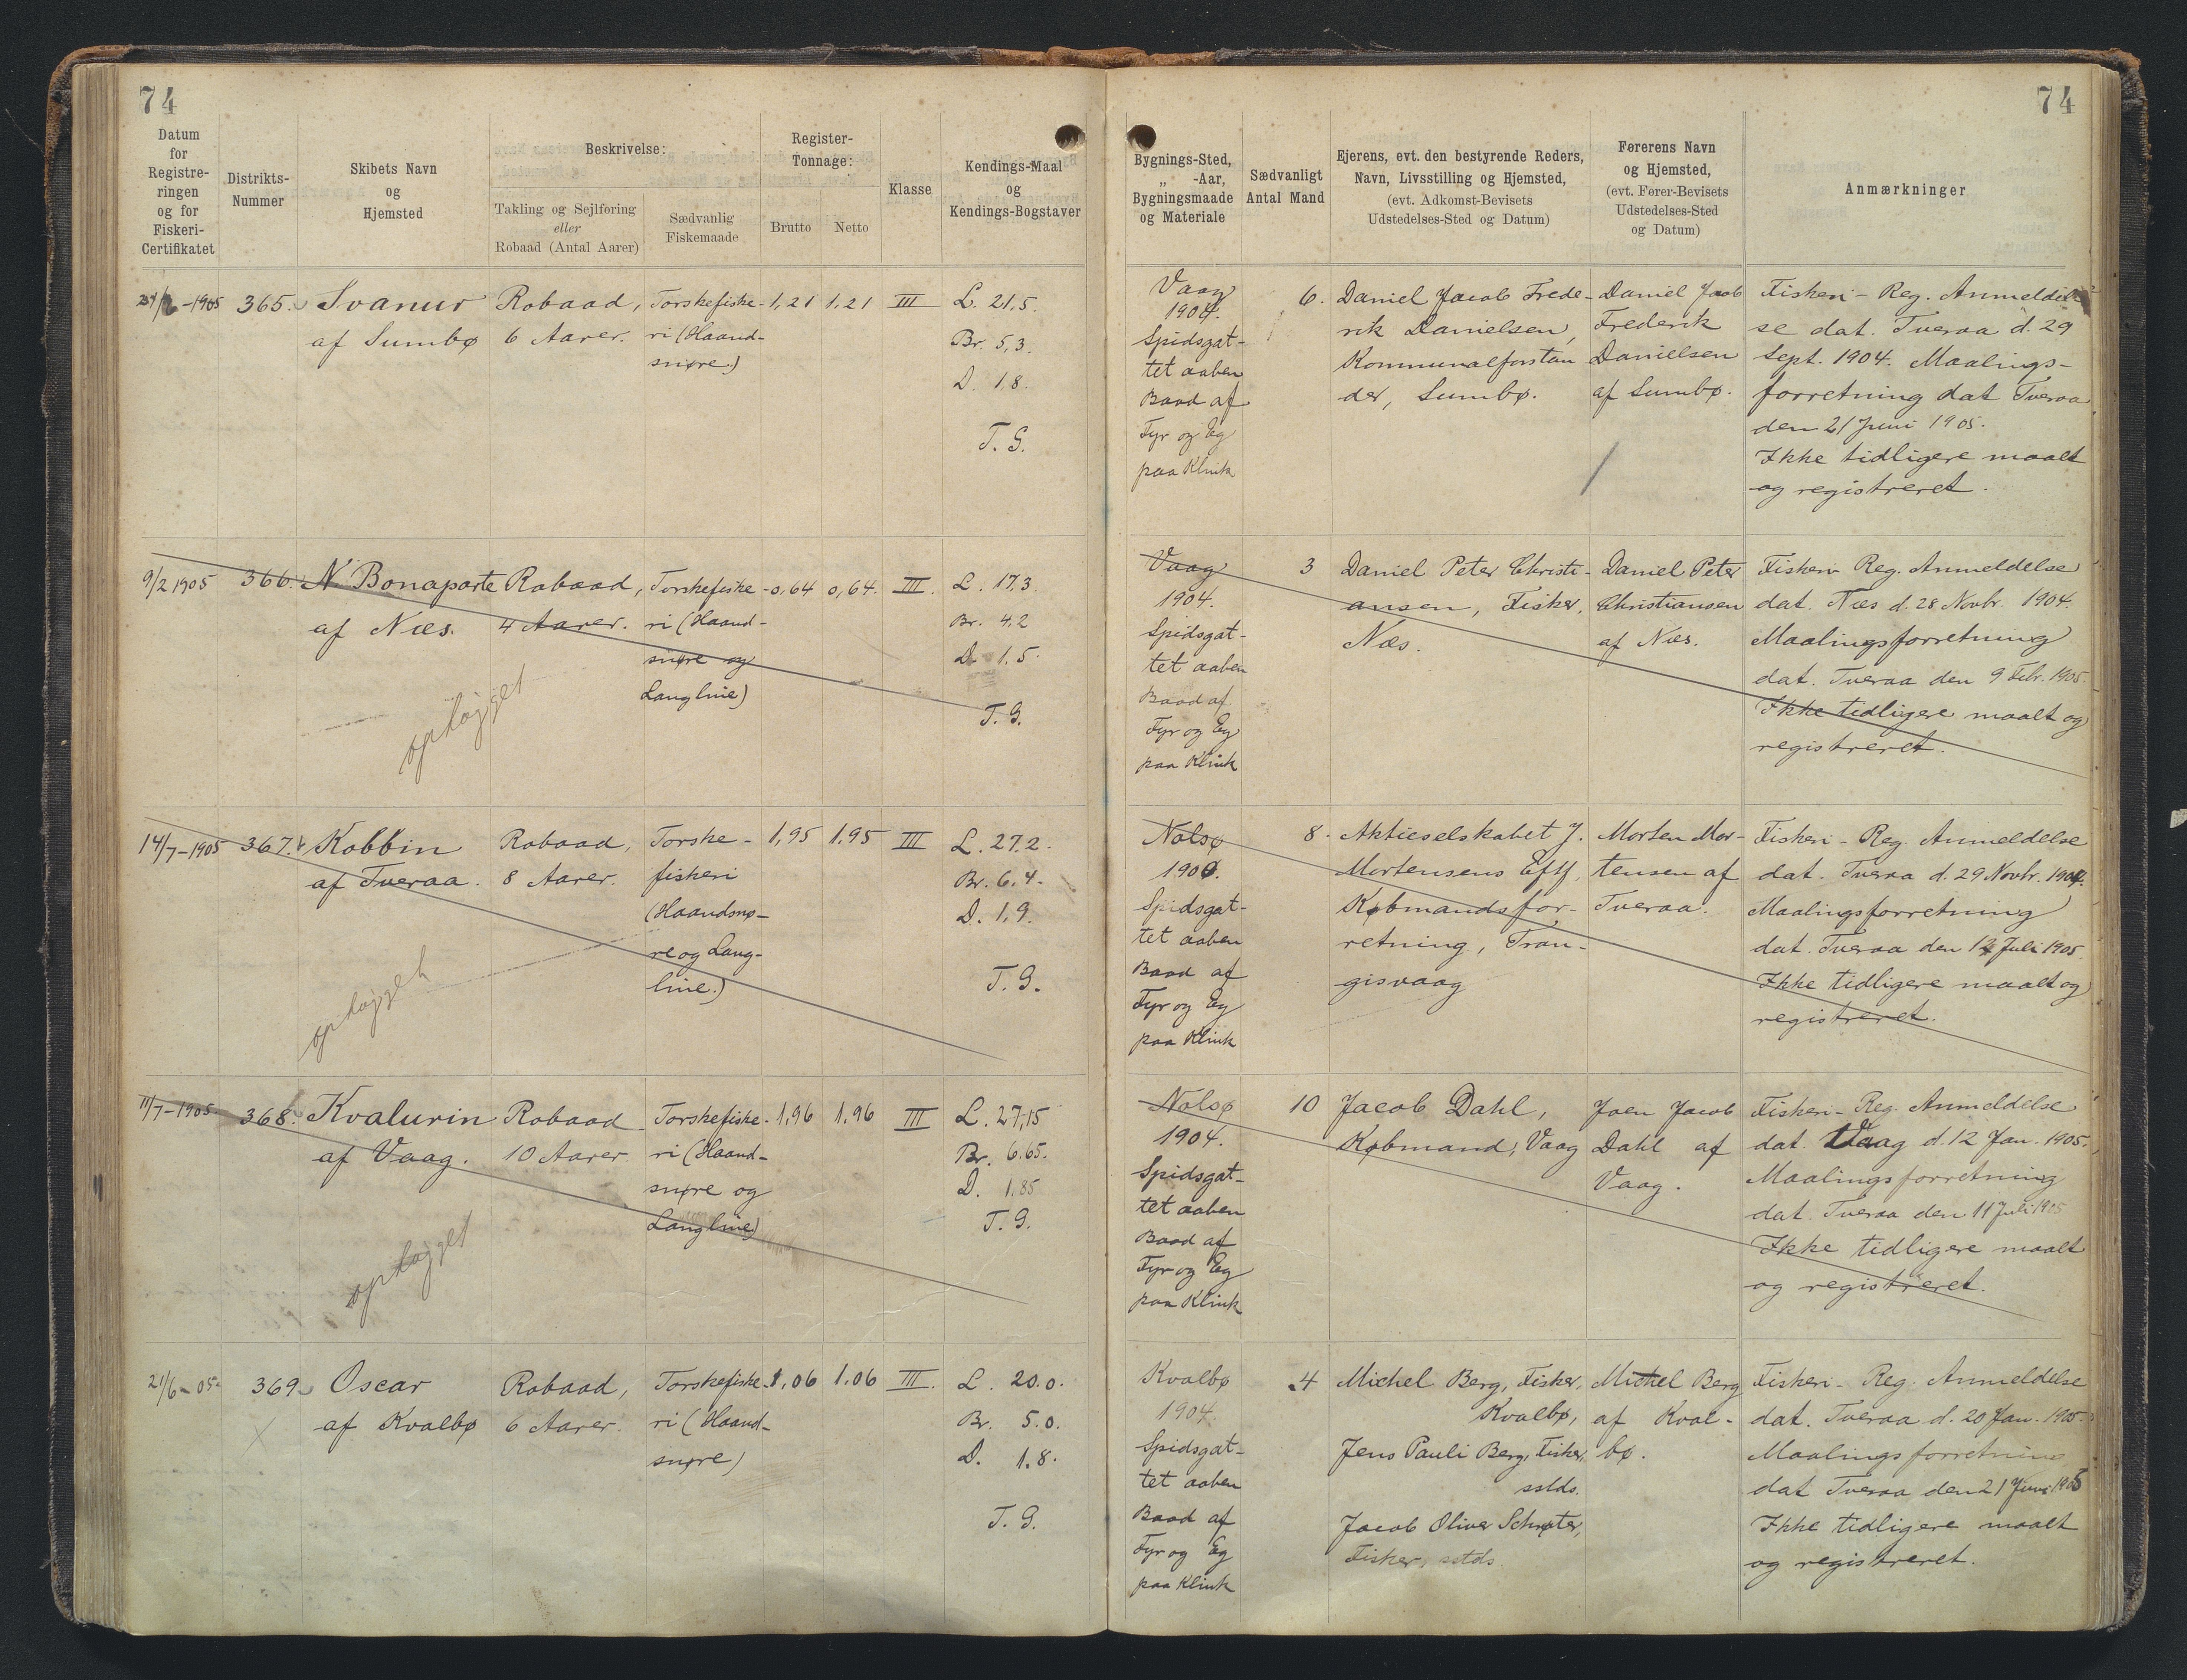 74
74
Datum
for
Registre-
ringen
og for
Fiskeri-
Certifikatet
Distrikts-
Nummer
Skibets Navn
og
Hjemsted
Beskrivelse:
Takling og Sejlføring
eller
Robaad (Antal Aarer)
Sædvanlig
Fiskemaade
Register-
Tonnage:
Brutto
Netto
Klasse
Kendings-Maal
og
Kendings-Bogstaver
Bygnings-Sted,
„ -Aar,
Bygningsmaade
og Materiale
Sædvanligt
Antal Mand
Ejerens, evt. den bestyrende Reders,
Navn, Livsstilling og Hjemsted,
(evt. Adkomst-Bevisets
Udstedelses-Sted og Datum)
Førerens Navn
og Hjemsted,
(evt. Fører-Bevisets
Udstedelses-Sted
og Datum)
Anmærkninger
21/6-1905
365.
Svanur
af Sumbø
Robaad,
6 Aarer.
Torskefiske-
ri (Haand-
snøre)
1,21
1,21
III
L. 21,5.
Br. 5,3.
D. 1,8.
T. G.
Vaag
1904.
Spidsgat-
tet aaben
Baad af
Fyr og Eg
paa Klink
6.
Daniel Jacob Frede-
rik Danielsen,
Kommunalforstan
der, Sumbø.
Daniel Jacob
Frederik
Danielsen
af Sumbø.
Fiskeri-Reg. Anmeldel-
se dat. Tveraa d. 29
Sept. 1904. Maalings-
forretning dat Tveraa
den 21 Juni 1905.
Ikke tidligere maalt
og registreret.
9/2 1905
366.
N. Bonaparte
af Næs.
ophøgget
Robaad,
4 Aarer.
Torskefiske-
ri (Haand-
snøre og
Langline)
0,64
0,64.
III.
L. 17,3.
Br. 4,2
D. 1,5.
T. G.
Vaag
1904.
Spidsgat-
tet aaben
Baad af
Fyr og Eg
paa Klink
3
Daniel Peter Christi-
ansen, Fisker,
Næs.
Daniel Peter
Christiansen
af Næs.
Fiskeri Reg. Anmeldelse
dat. Næs d. 28 Novbr. 1904.
Maalingsforretning
dat. Tveraa den 9 Febr. 1905.
Ikke tidligere maalt og
registreret.
14/7-1905
367.
Kobbin
af Tveraa.
ophøgget
Robaad,
8 Aarer.
Torske-
fiskeri
(Haandsnø-
re og Lang-
line.)
1,95
1,95
III
L. 27,2.
Br. 6,4.
D. 1,9.
T. G.
Nolsø
1900.
Spidsgat-
tet aaben
Baad af
Fyr og Eg
paa Klink
8.
Aktieselskabet J.
Mortensens Eftf,
Købmandsfor-
retning, Tran-
gisvaag
Morten Mor-
tensen af
Tveraa.
Fiskeri-Reg. Anmeldelse
dat. Tveraa d. 29 Novbr. 1904.
Maalingsforretning
dat. Tveraa den 14 Juli 1905.
Ikke tidligere maalt og
registreret.
11/7-1905.
368.
Kvalurin
af Vaag.
ophøgget
Robaad
10 Aarer
Torskefiske-
ri (Haand-
snøre og
Langline)
1,96
1,96
III
L. 27,15
Br. 6,65.
D. 1,85
T. G.
Nolsø
1904.
Spidsgat-
tet aaben
Baad af
Fyr og Eg
paa Klink
10
Jacob Dahl,
Købmand, Vaag
Joen Jacob
Dahl af
Vaag.
Fiskeri-Reg. Anmeldelse
dat. Vaag d. 12 Jan. 1905.
Maalingsforretning
dat. Tveraa den 11 Juli 1905
Ikke tidligere maalt
og registreret.
21/6-05.
369.
Oscar
af Kvalbø
Robaad,
6 Aarer.
Torskefiske-
ri (Haand-
snøre)
1,06
1,06
III.
L. 20,0.
Br. 5,0.
D. 1,8.
T. G.
Kvalbø
1904.
Spidsgat-
tet aaben
Baad af
Fyr og Eg
paa Klink
4
Michel Berg, Fisker,
Kvalbø,
Jens Pauli Berg, Fisker,
sstds.
Jacob Oliver Schrøter,
Fisker, sstds
Michel Berg
af Kval-
bø.
Fiskeri-Reg. Anmeldelse
dat. Tveraa d. 20 Jan. 1905.
Maalingsforretning
dat Tveraa den 21 Juni 1905
Ikke tidligere maalt
og registreret.